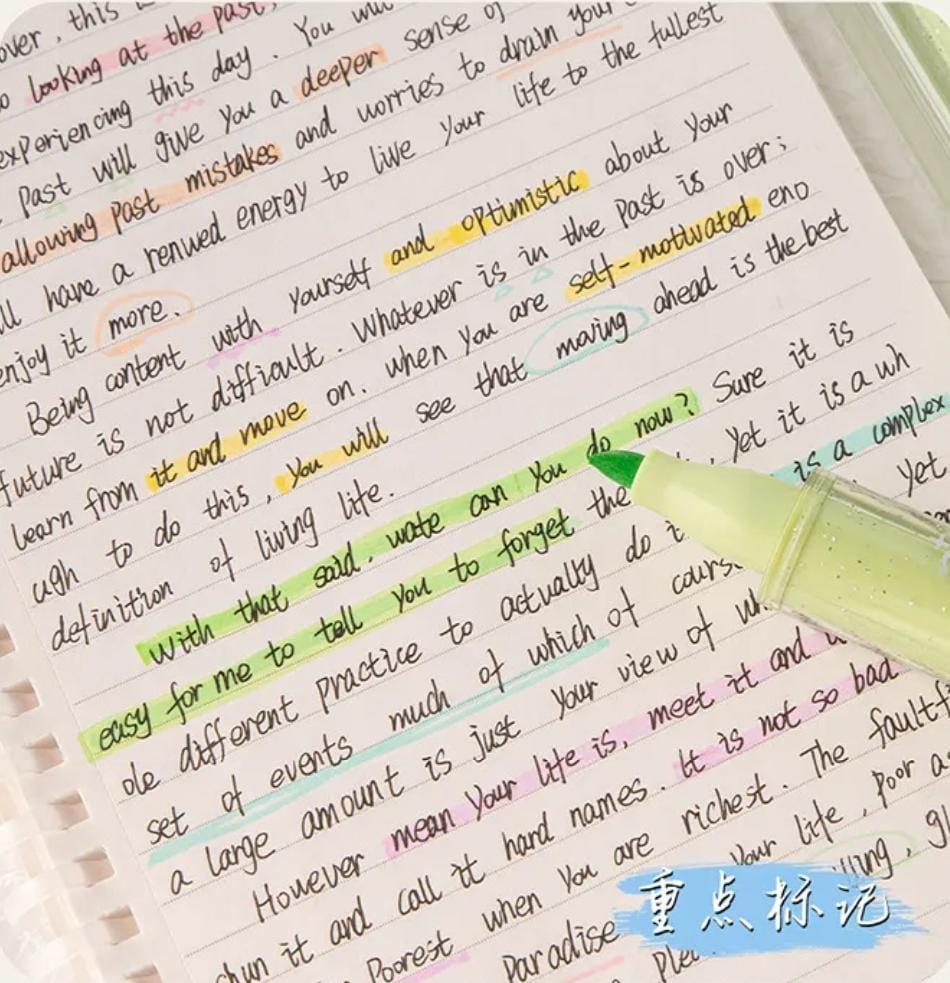 over, this
looking at the past,
experiencing this day. You will
Past will give you a deeper sense of
allowing past mistakes and worries to drain your
have a renwed energy to live your life to the fullest
enjoy it more.
Being content with yourself and optimistic about your
future is not difficult. Whatever is in the past is over;
learn from it and move on. when you are self-motivated eno
ugh to do this, you will see that moving ahead is the best
definition of living life.
With that said, wate can you do now? Sure it is
easy for me to tell you to forget the , Yet it is a wh
ole different practice to actually do is a complex
set of events much of which of course yet
a large amount is just your view of
However mean your life is, meet it and
shun it and call it hard names. It is not so bad
Poorest when you are richest. The faultf
Paradise your life, poor as
重点标记